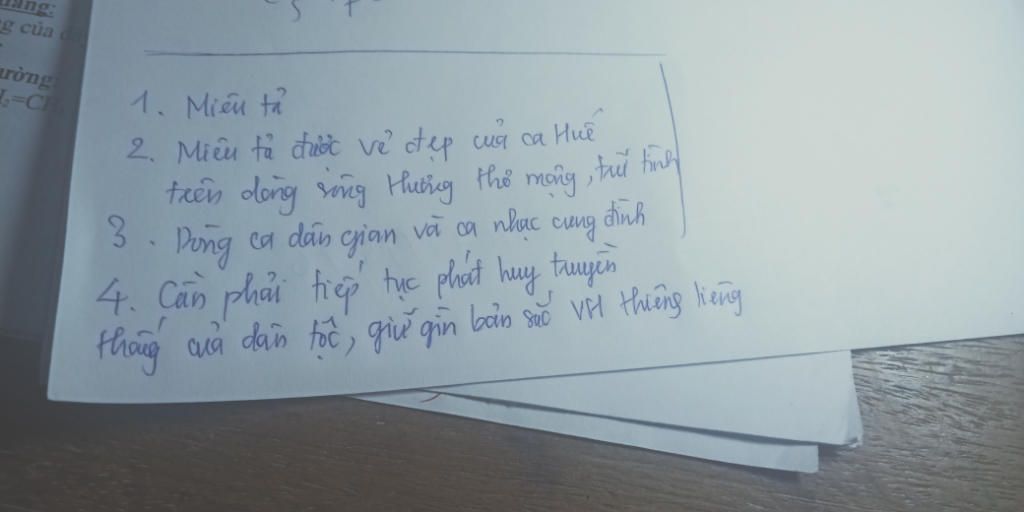 àng:
g của
ường:
1. Miêu tả
2. Miêu tả được vẻ đẹp của ca Huế
trên dòng sông Hương thơ mộng, trữ tình
3. Dòng ca dân gian và ca nhạc cung đình
4. Cần phải tiếp tục phát huy truyền
thống của dân tộc, giữ gìn bản sắc VH thiêng liêng